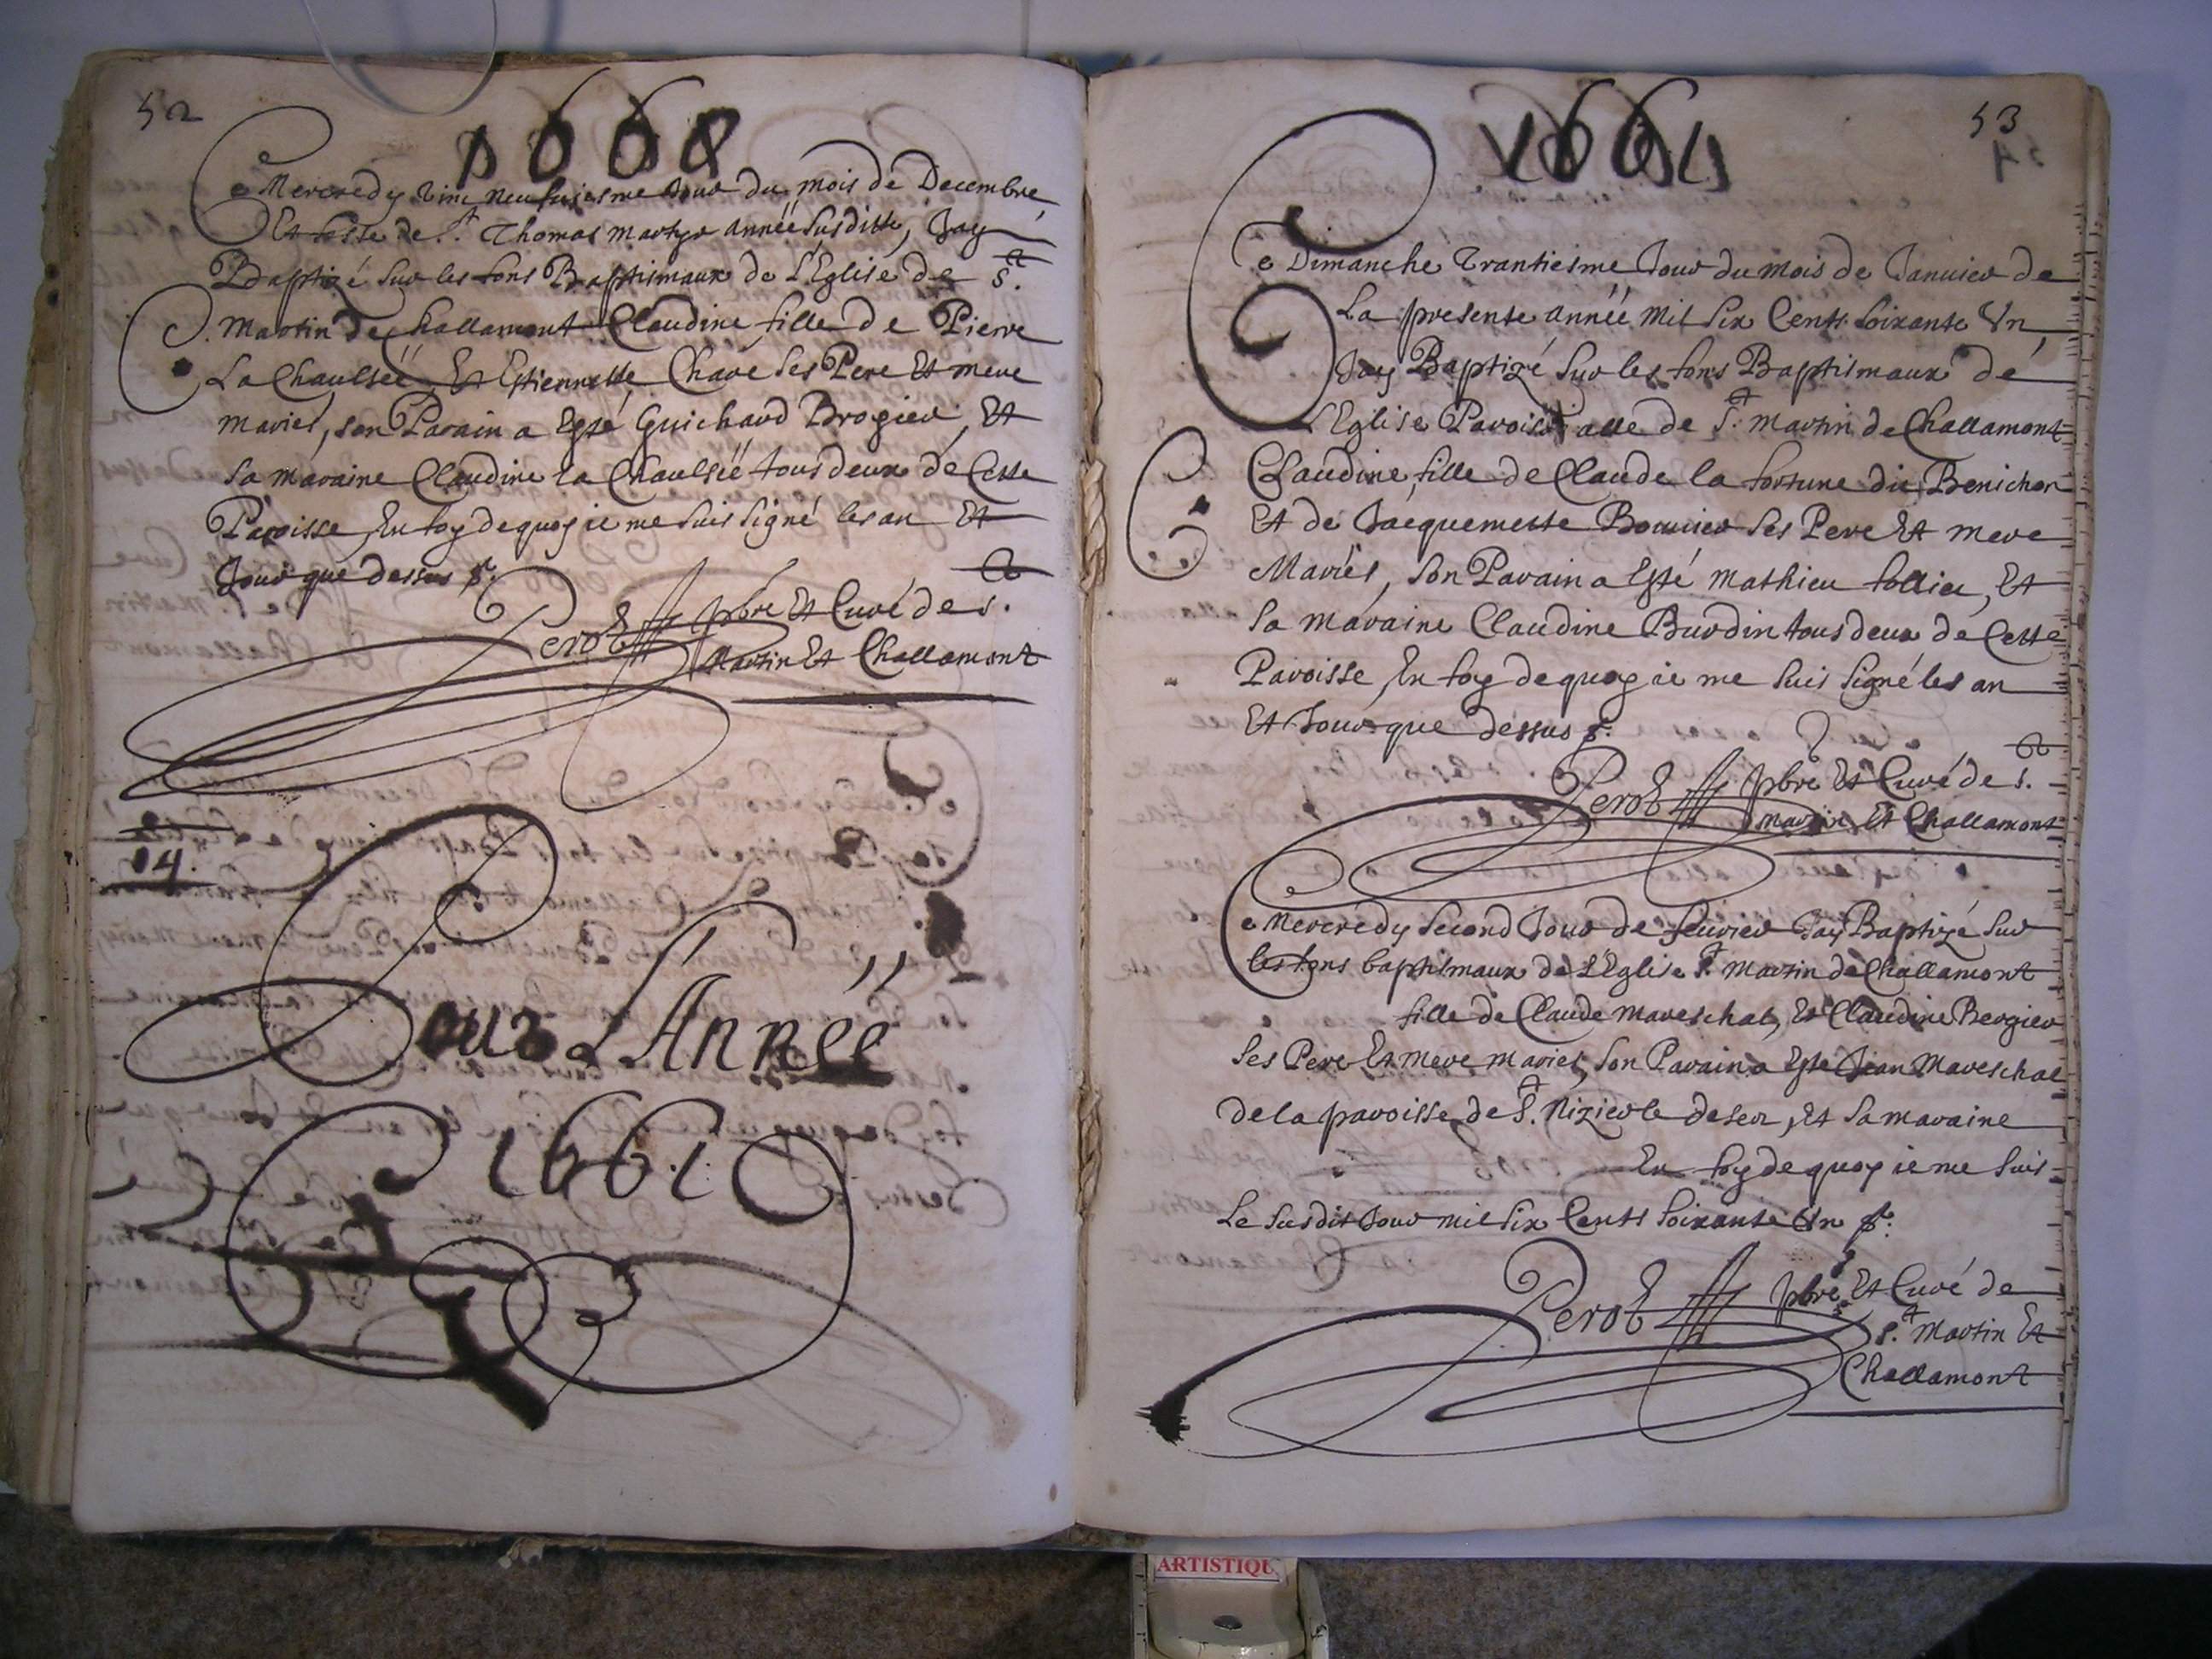 52
1660
Le Mercredy vint neufuiesme Jour du mois de Decembre,
Et feste de St. Thomas martyr année susditte, Jay
Baptizé sur les fons Baptismaux de L'Eglise de St.
Martin de Challamont Claudine fille de Pierre
La Chaulsée, Et Estiennette Chavé ses Pere Et mere
mariés, son Parain a Esté Guichard Brogier, Et
sa maraine Claudine la Chaulsée tous deux de Cette
Paroisse, En foy dequoy ie me suis signé les an Et
Jour que dessus
Perot pbre Et Curé de St.
Martin Et Challamont
14.
Pour L'Année
1661
53
1661
Le Dimanche Trantiesme Jour du mois de Januier de
La presente année mil six Cents soixante Un
Jay Baptizé sur les fons Baptismaux de
L'Eglise Paroissialle de St. Martin de Challamont
Claudine, fille de Claude la fortune dit Benichon
Et de Jacquemette Bouuier ses Pere Et mere
Mariés, son Parain a Esté Mathieu follier, Et
sa maraine Claudine Burdin tous deux de Cette
Paroisse, En foy dequoy ie me suis signé les an
Et Jour que dessus
Perot pbre Et Curé de St.
Martin Et Challamont
Le Mercredy second Jour de feurier Jay Baptizé sur
les fons baptismaux de L'Eglise St. Martin de Challamont
fille de Claude Mareschal, Et Claudine Bergier
ses Pere Et mere mariés, son Parain a Esté Jean Mareschal
de la paroisse de St. Nizier le desert, Et sa maraine
En foy dequoy ie me suis
Le susdit Jour mil six Cents soixante Un
Perot pbre Et Curé de
St. Martin Et
Challamont
ARTISTIQU